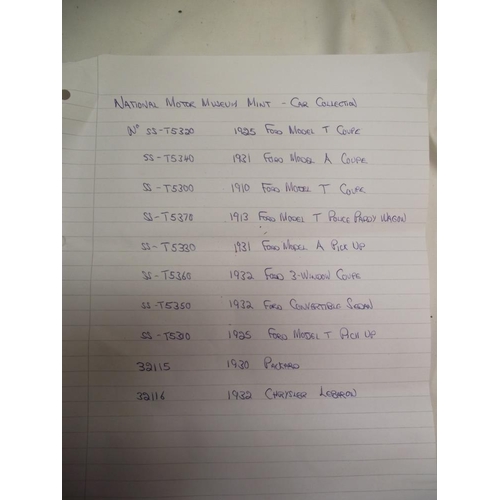 NATIONAL MOTOR MUSEUM MINT - CAR COLLECTION
No SS-T5320 1925 FORD MODEL T COUPE
SS-T5340 1931 FORD MODEL A COUPE
SS-T5300 1910 FORD MODEL T COUPE
SS-T5370 1913 FORD MODEL T POLICE PADDY WAGON
SS-T5330 1931 FORD MODEL A PICK UP
SS-T5360 1932 FORD 3-WINDOW COUPE
SS-T5350 1932 FORD CONVERTIBLE SEDAN
SS-T5310 1925 FORD MODEL T PICK UP
32115 1930 PACKARD
32116 1932 CHRYSLER LEBARON